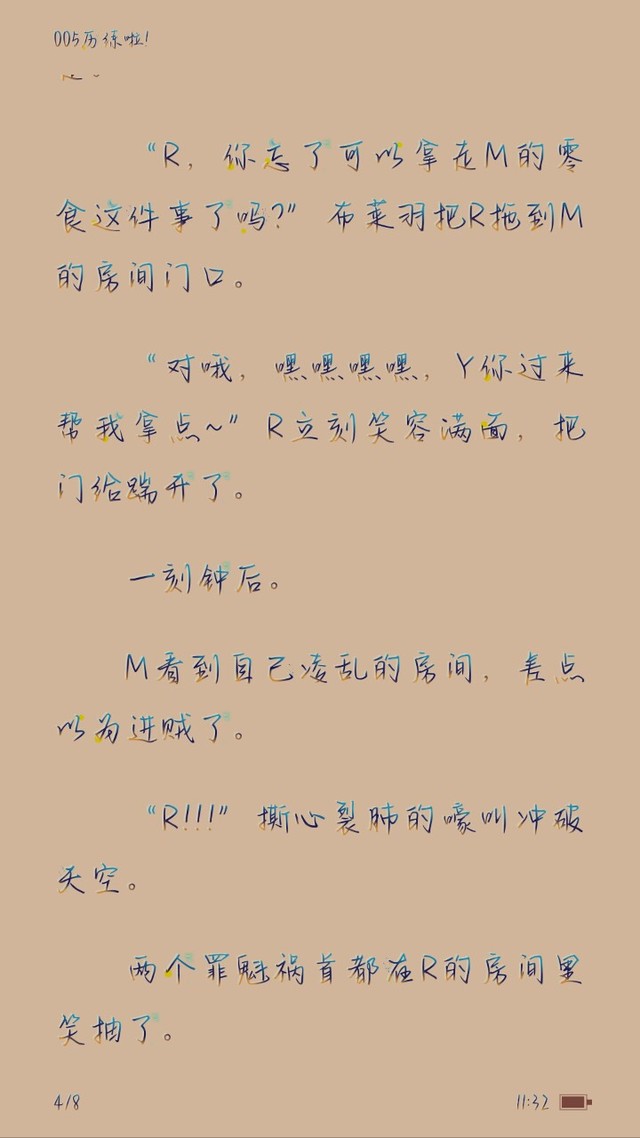 005历练啦!
“R，你忘了可以拿走M的零
食这件事了吗?”布莱羽把R拖到M
的房间门口。
“对哦，嘿嘿嘿嘿，Y你过来
帮我拿点~”R立刻笑容满面，把
门给踹开了。
一刻钟后。
M看到自己凌乱的房间，差点
以为进贼了。
“R!!!”撕心裂肺的嚎叫冲破
天空。
两个罪魁祸首都在R的房间里
笑抽了。
4/8
11:32